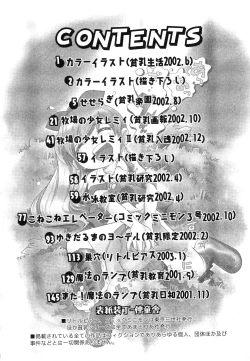 CONTENTS
1 カラーイラスト(貧乳生活2002.6)
2 カラーイラスト(描き下ろし)
5 せせらぎ(貧乳楽園2002.8)
21 牧場の少女レミィ(貧乳画報2002.10)
41 牧場の少女レミィⅡ(貧乳入魂2002.12)
57 イラスト(描き下ろし)
58 イラスト(貧乳研究2002.4)
59 水泳教室(貧乳研究2002.4)
77 こねこねエレベーター(コミックミニモン3号2002.10)
93 ゆきだるまのヨーデル(貧乳限定2002.2)
113 巣穴(リトルピアス2003.1)
129 魔法のランプ(貧乳教育2001.9)
145 また!魔法のランプ(貧乳日和2001.11)
表紙装丁
■掲載されている全ての作品はフィクションでありあらゆる個人、団体ほか及び
事件などとは一切関係ありません。